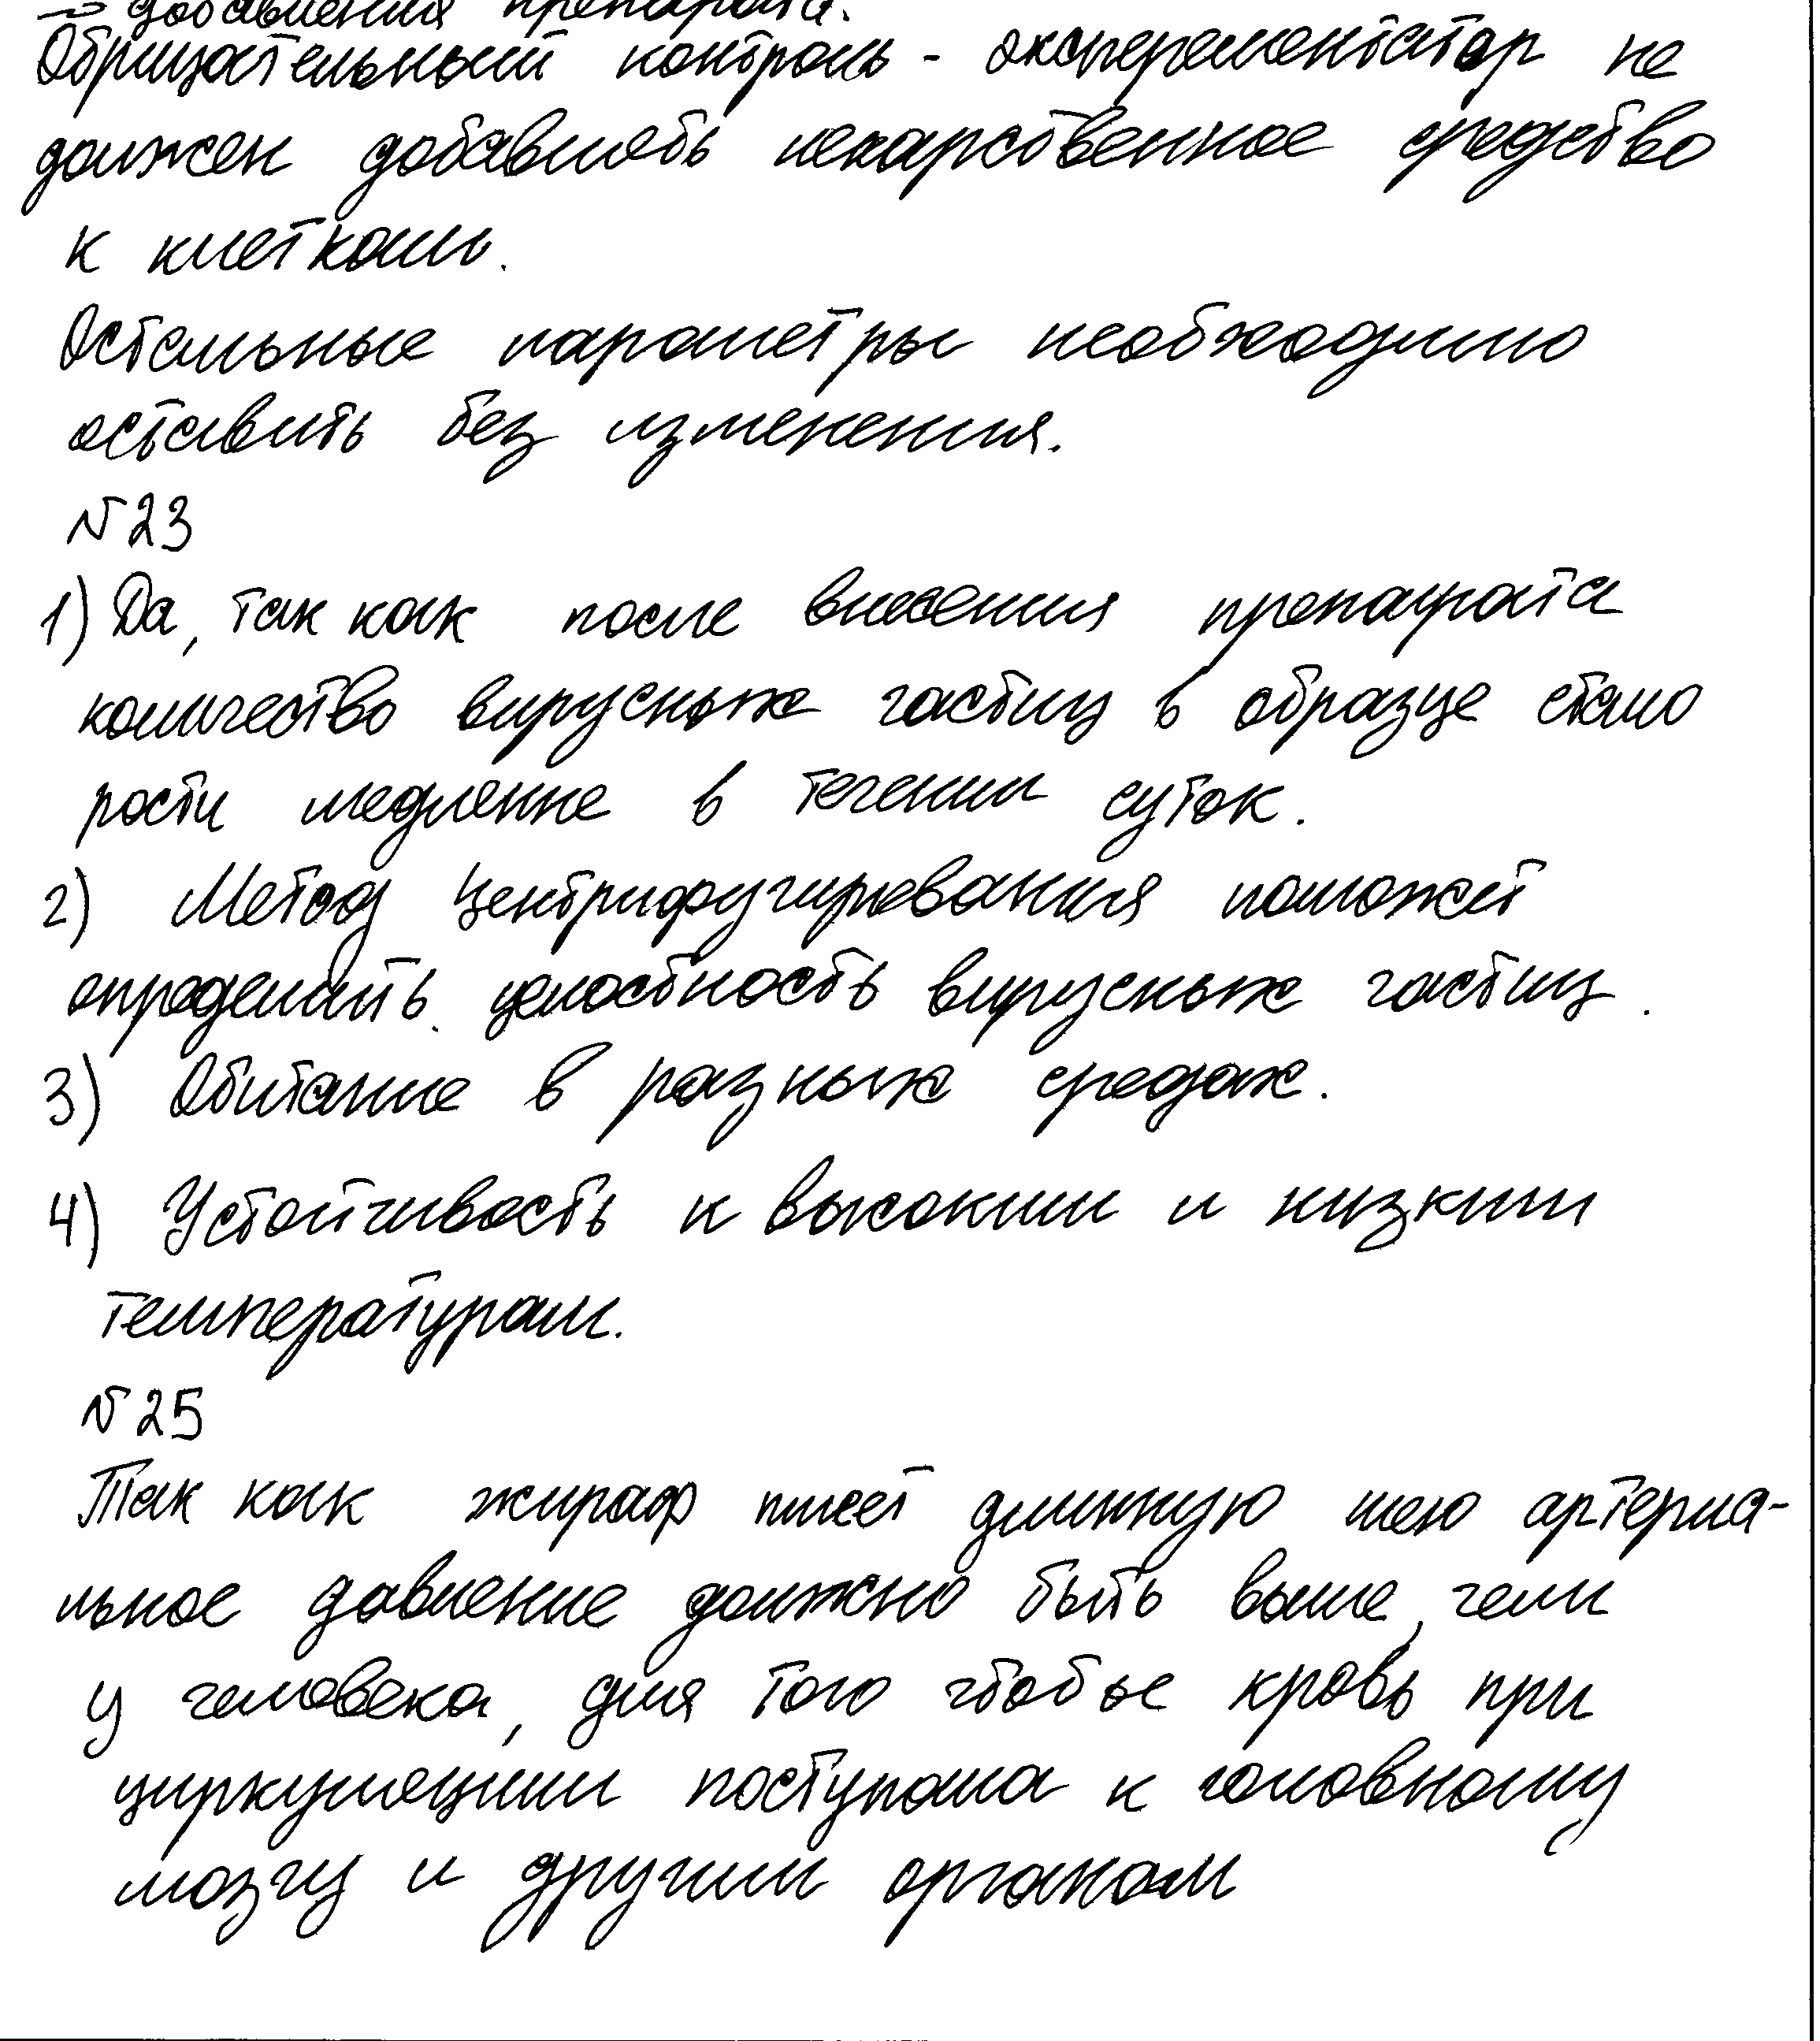 добавления препарата.
Отрицательный контроль - эксперементатор не
должен добавлять лекарственное средство
к клеткам.
Остальные параметры необходимо
оставить без изменения.
№23
1) Да, так как после внесения препарата
количество вирусных частиц в образце стало
рости медленне в течении суток.
2) Метод центрифугирования поможет
определить целостность вирусных частиц.
3) Обитание в разных средах.
4) Устойчивость к высоким и низким
температурам.
№25
Так как жираф имеет длинную шею артериа-
льное давление должно быть выше, чем
у человека, для того чтобы кровь при
циркуляции поступала к головному
мозгу и другим органам